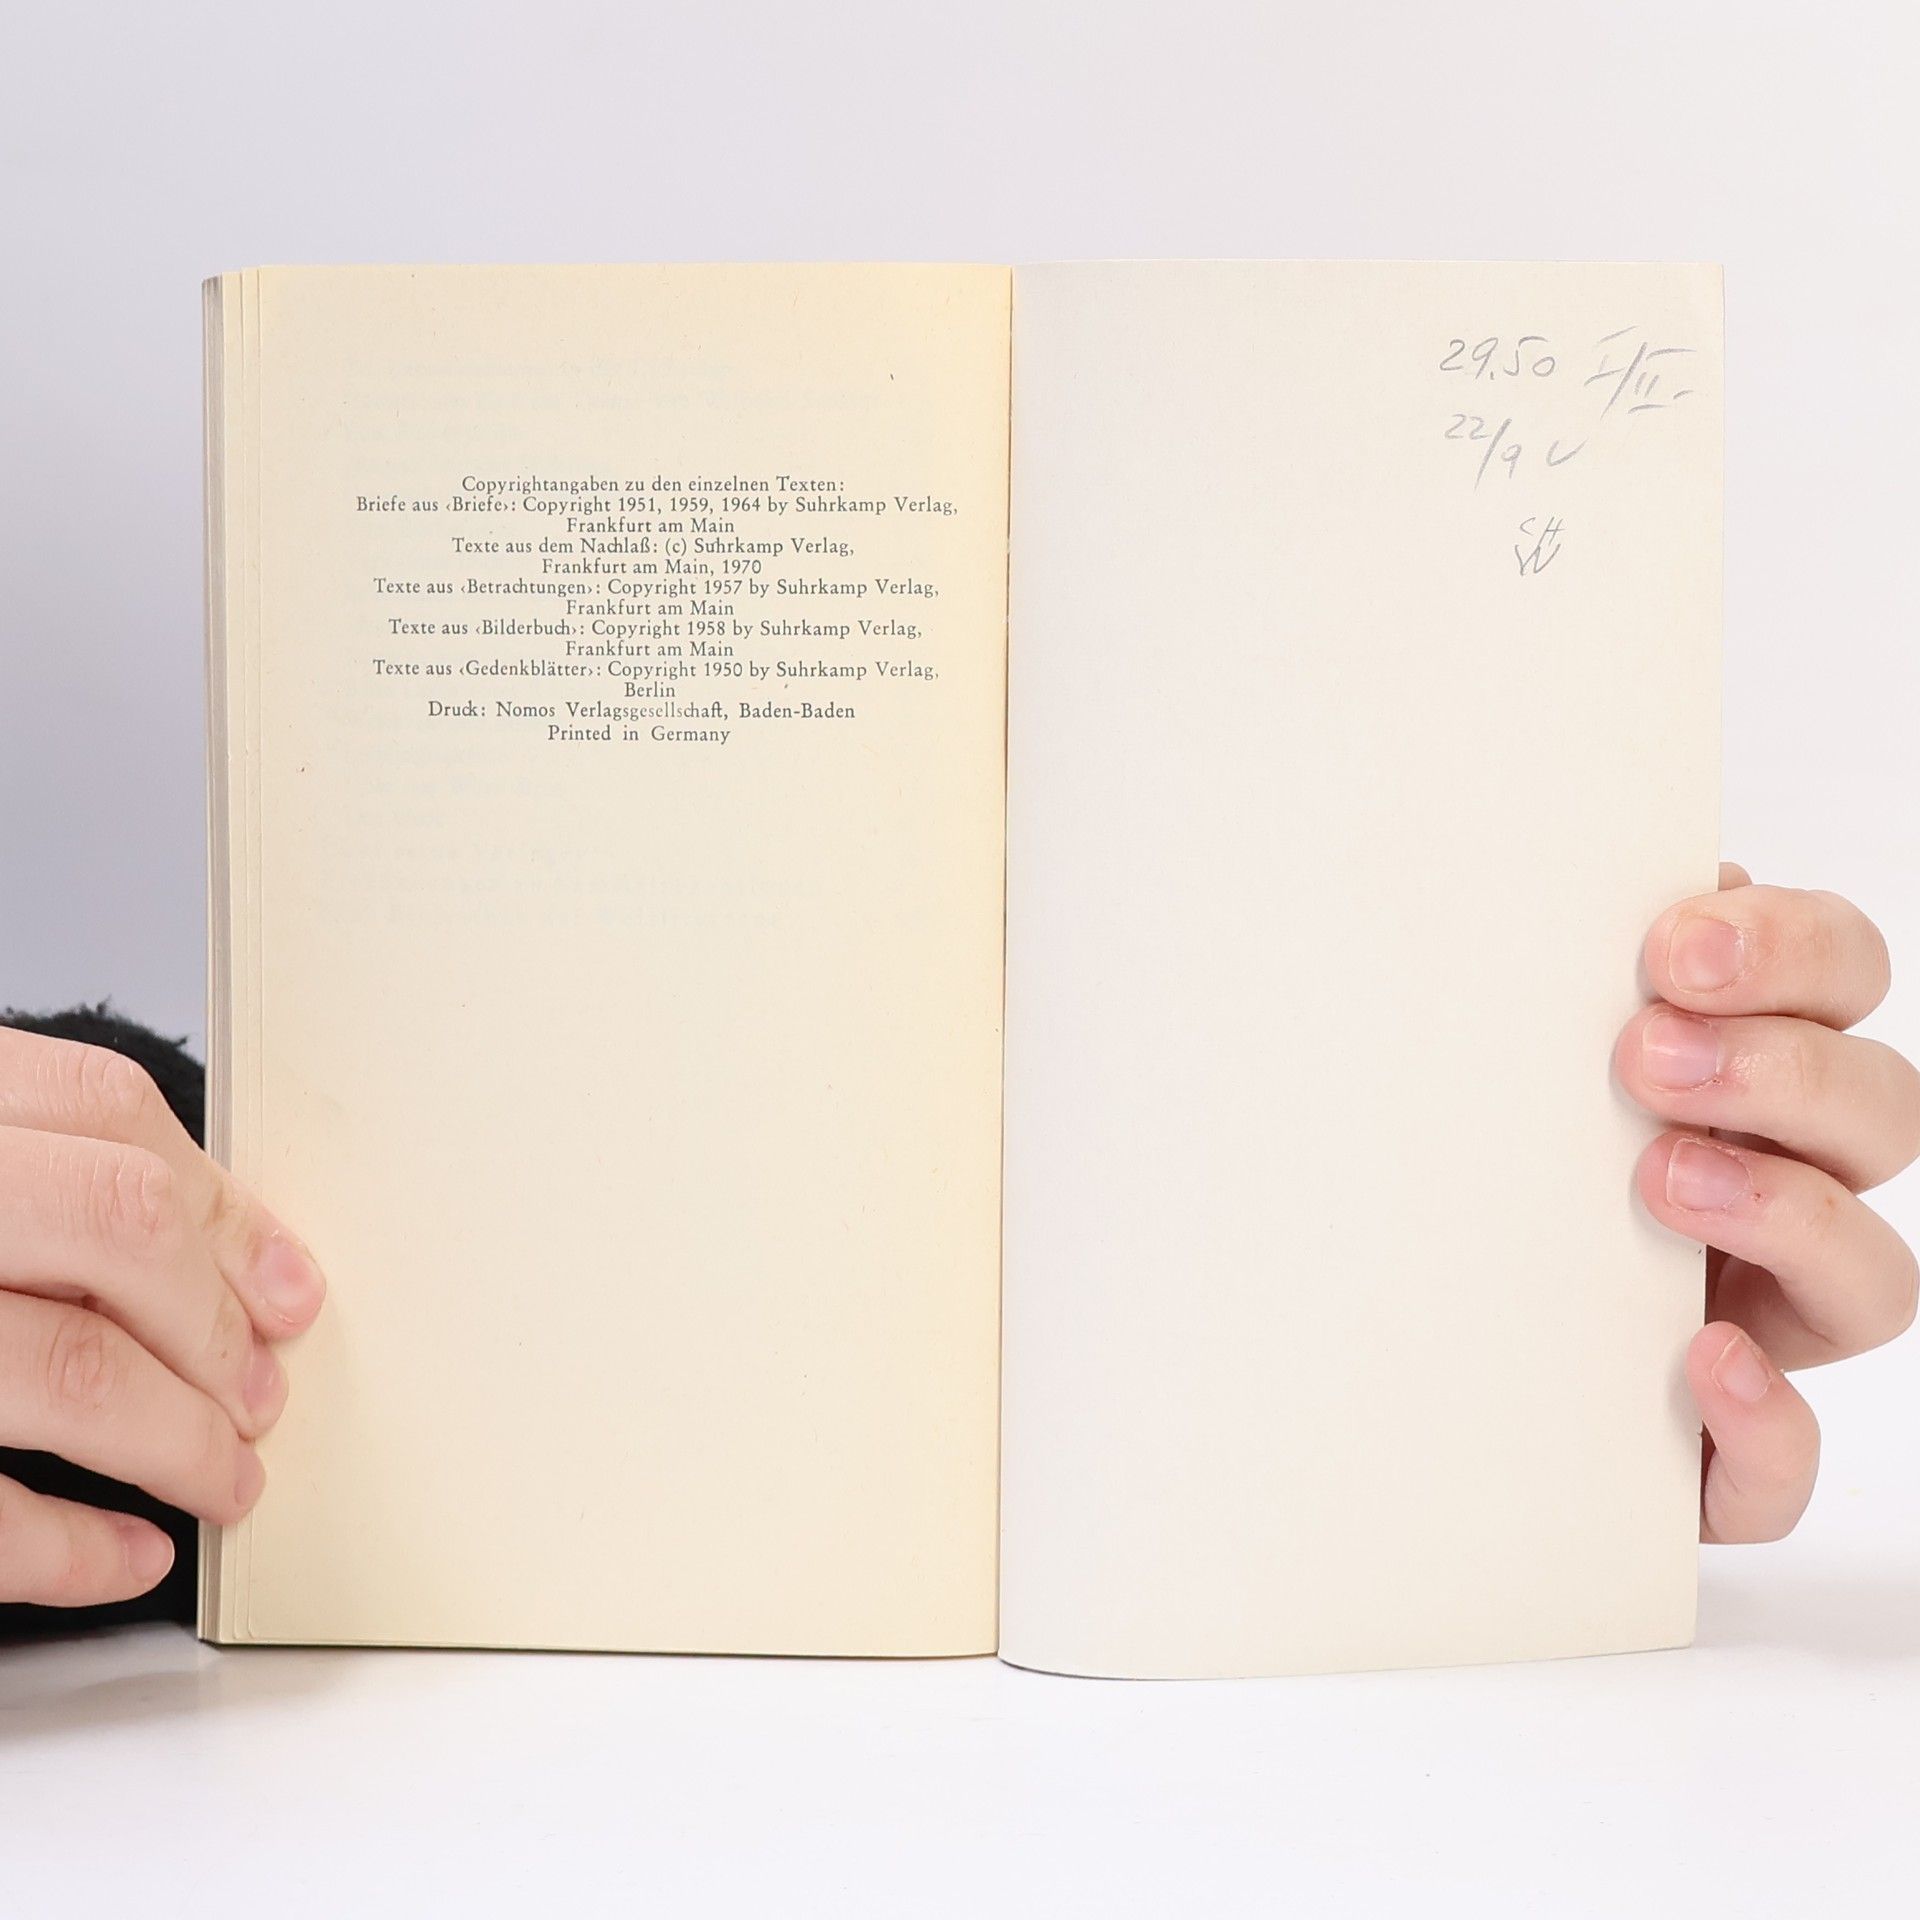 Copyrightangaben zu den einzelnen Texten:
Briefe aus ‹Briefe›: Copyright 1951, 1959, 1964 by Suhrkamp Verlag,
Frankfurt am Main
Texte aus dem Nachlaß: (c) Suhrkamp Verlag,
Frankfurt am Main, 1970
Texte aus ‹Betrachtungen›: Copyright 1957 by Suhrkamp Verlag,
Frankfurt am Main
Texte aus ‹Bilderbuch›: Copyright 1958 by Suhrkamp Verlag,
Frankfurt am Main
Texte aus ‹Gedenkblätter›: Copyright 1950 by Suhrkamp Verlag,
Berlin
Druck: Nomos Verlagsgesellschaft, Baden-Baden
Printed in Germany
29.50 I/II
22/9